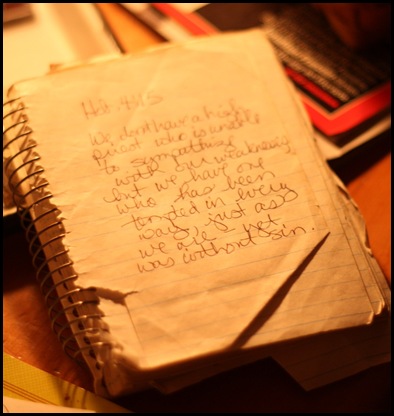 Heb. 4:15
We dont have a high
Priest who is unable
to sympathize
with our weakness
but we have one
who has been
tempted in every
way, just as
we are - yet
was without sin.